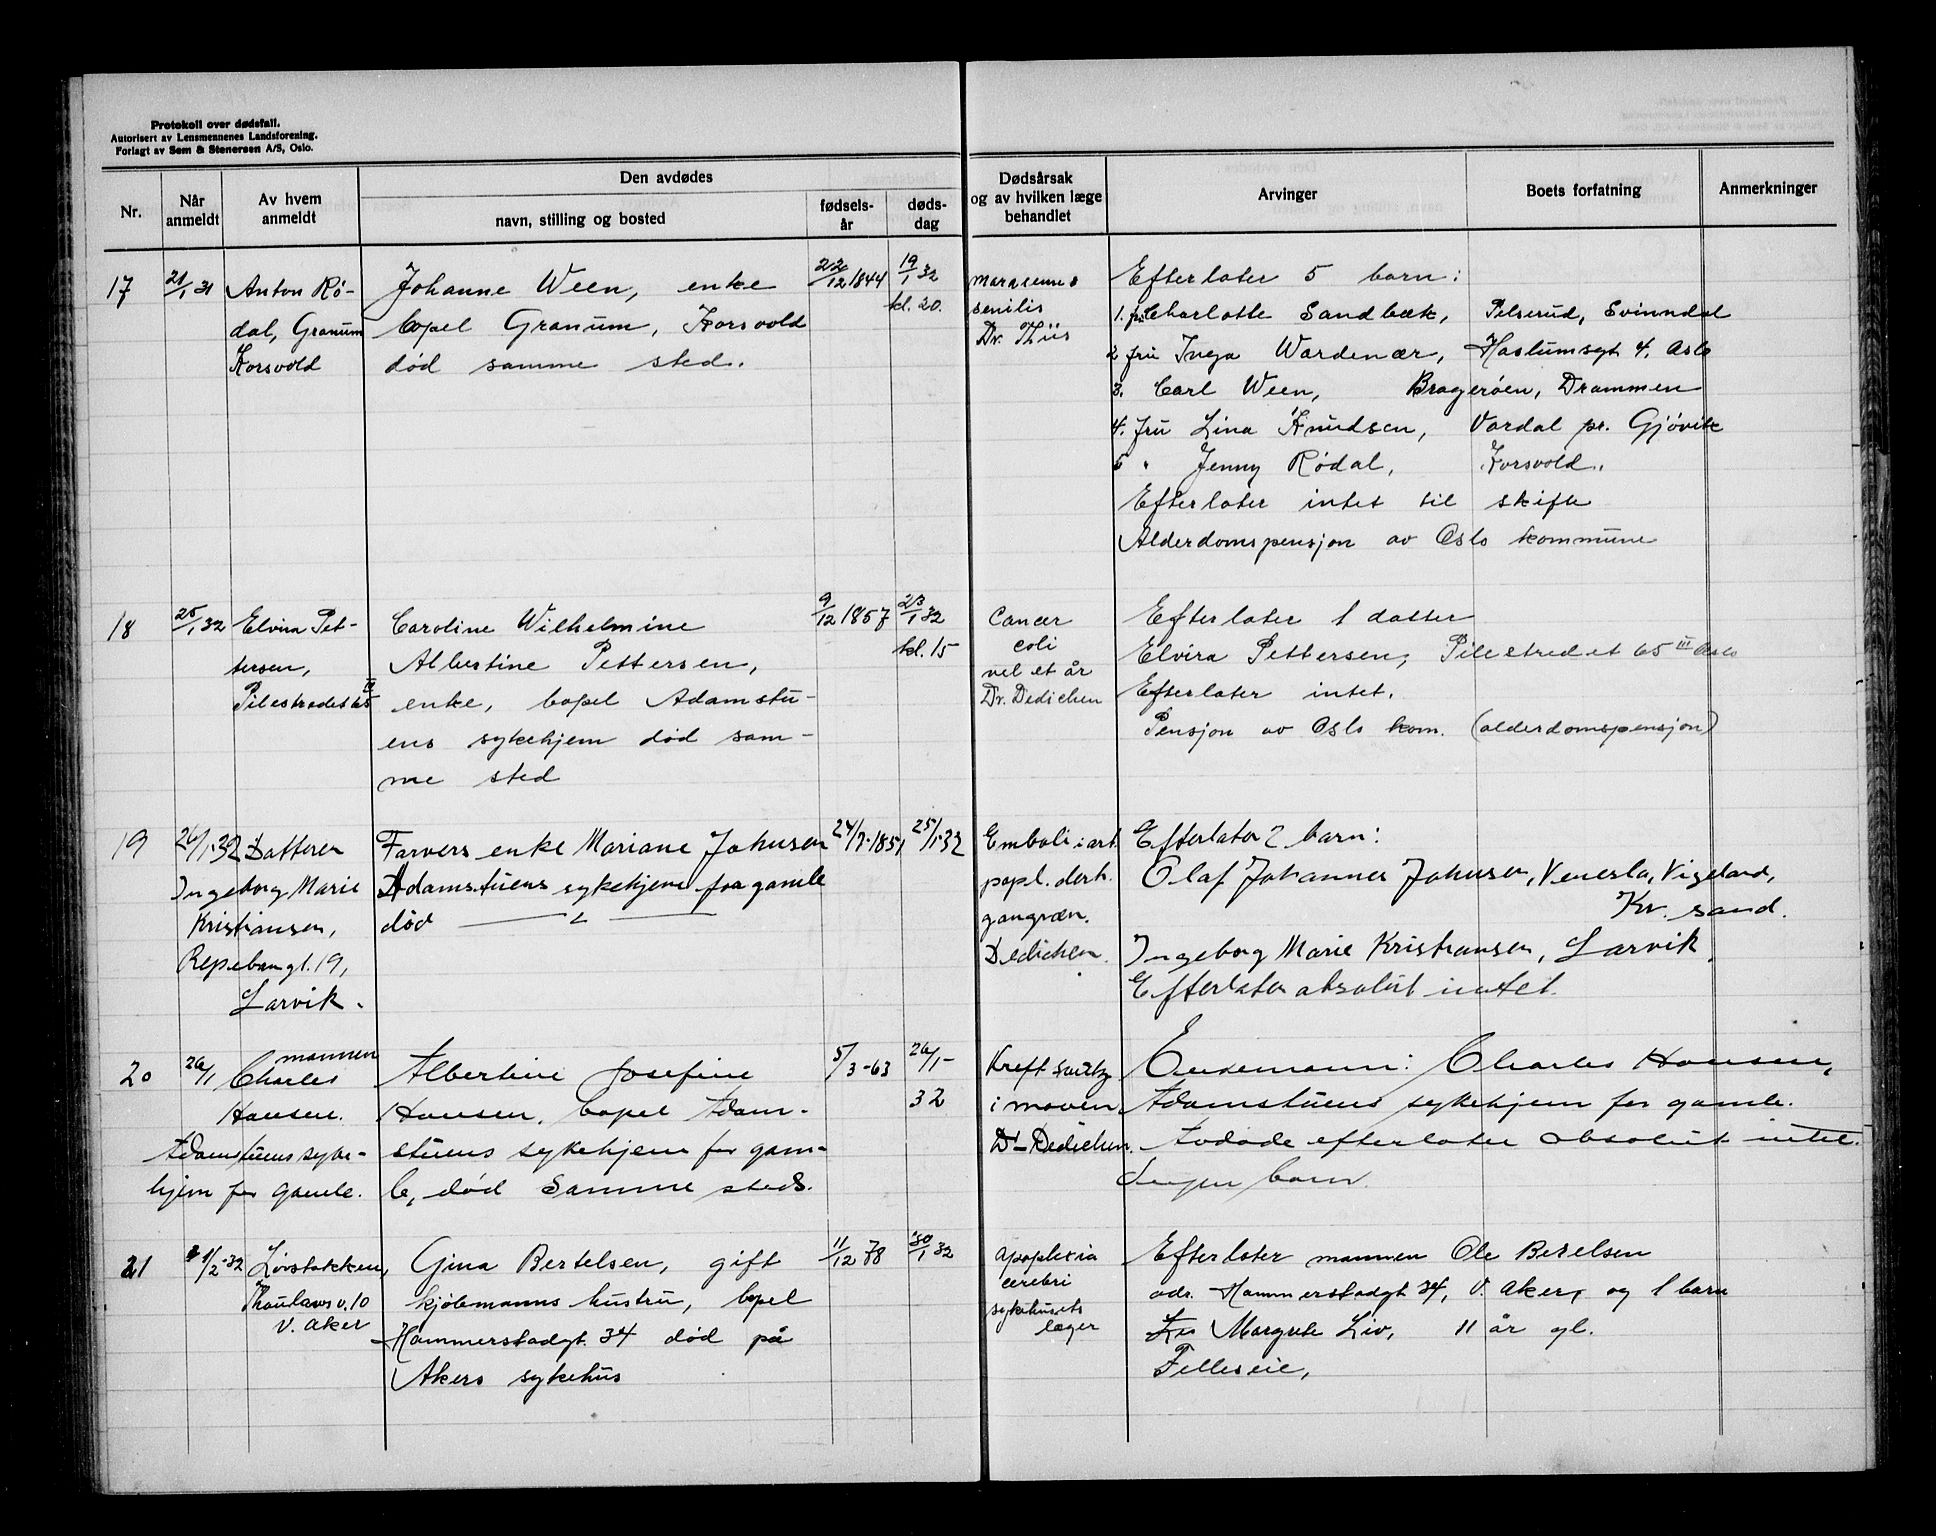 Protokoll over dødsfall.
Autorisert av Lensmennenes Landsforening.
Forlagt av Sem & Stenersen A/S, Oslo.
Nr.
Når anmeldt
Av hvem anmeldt
Den avdødes
navn, stilling og bosted
fødsels-år
døds-dag
Dødsårsak og av hvilken læge behandlet
Arvinger
Boets forfatning
Anmerkninger
17
21/1 31
Anton Rø-
dal, Granum
Korsvold
Johanne Ween, enke
bopel Granum, Korsvold
død samme sted.
22/12 1844
19/1 32
kl. 20.
marasmus
senilis
Dr. Thiis
Efterlater 5 barn:
1. fru Charlotte Sandbæk, Pelserud, Svinndal
2 fru Inga Wardenær, Haslumsgt 4. Oslo
3. Carl Ween, Bragerøen, Drammen
4. fru Lina Knudsen, Vardal pr. Gjøvik
5 " Jenny Rødal, Korsvold.
Efterlater intet til skifte
Alderdomspensjon av Oslo kommune
18
25/1 32
Elvira Pet-
tersen,
Pilestredet 65 III
Caroline Wilhelmine
Albertine Pettersen,
enke, bopel Adamstu-
ens sykehjem død sam-
me sted
9/12 1857
23/1 32
kl. 15
Cancer
coli
vel et år
Dr. Dedichen
Efterlater 1 datter
Elvira Pettersen, Pilestredet 65 III Oslo
Efterlater intet.
Pensjon av Oslo kom. (alderdomspensjon)
19
26/1 32
Datteren
Ingeborg Marie
Kristiansen,
Repebangt. 19,
Larvik.
Farvers enke Mariane Johnsen
Adamstuens sykehjem for gamle
død — " —
24/7-1851
25/1-32
Emboli i art.
popl. dext.
gangræn.
Dedichen.
Efterlater 2 barn:
Olaf Johannes Johnsen, Venesla, Vigeland,
Kr. sand.
Ingeborg Marie Kristiansen, Larvik.
Efterlater absolut intet.
20
26/1
mannen
Charles
Hansen.
Adamstuens syke-
hjem for gamle.
Albertine Josefine
Hansen, bopel Adam-
stuens sykehjem for gam-
le, død samme steds.
5/3-63
26/1-
32
Kreft svulst
i maven
Dr Dedichen.
Enkemann: Charles Hansen,
Adamstuens sykehjem for gamle.
Avdøde efterlater absolut intet.
Ingen barn.
21
1/2-32
Løvstakken,
Thaulows v. 10
V. Aker
Gina Bertelsen, gift
kjøbmanns hustru, bopel
Hammerstadgt. 34 død på
Akers sykehus
11/12 78
30/1 32
apoplexia
cerebri
sykehusets
læger
Efterlater mannen Ole Berelsen
adr. Hammerstadgt 34, V. Aker, og 1 barn
Margrete Liv, 11 år gl.
Felleseie,